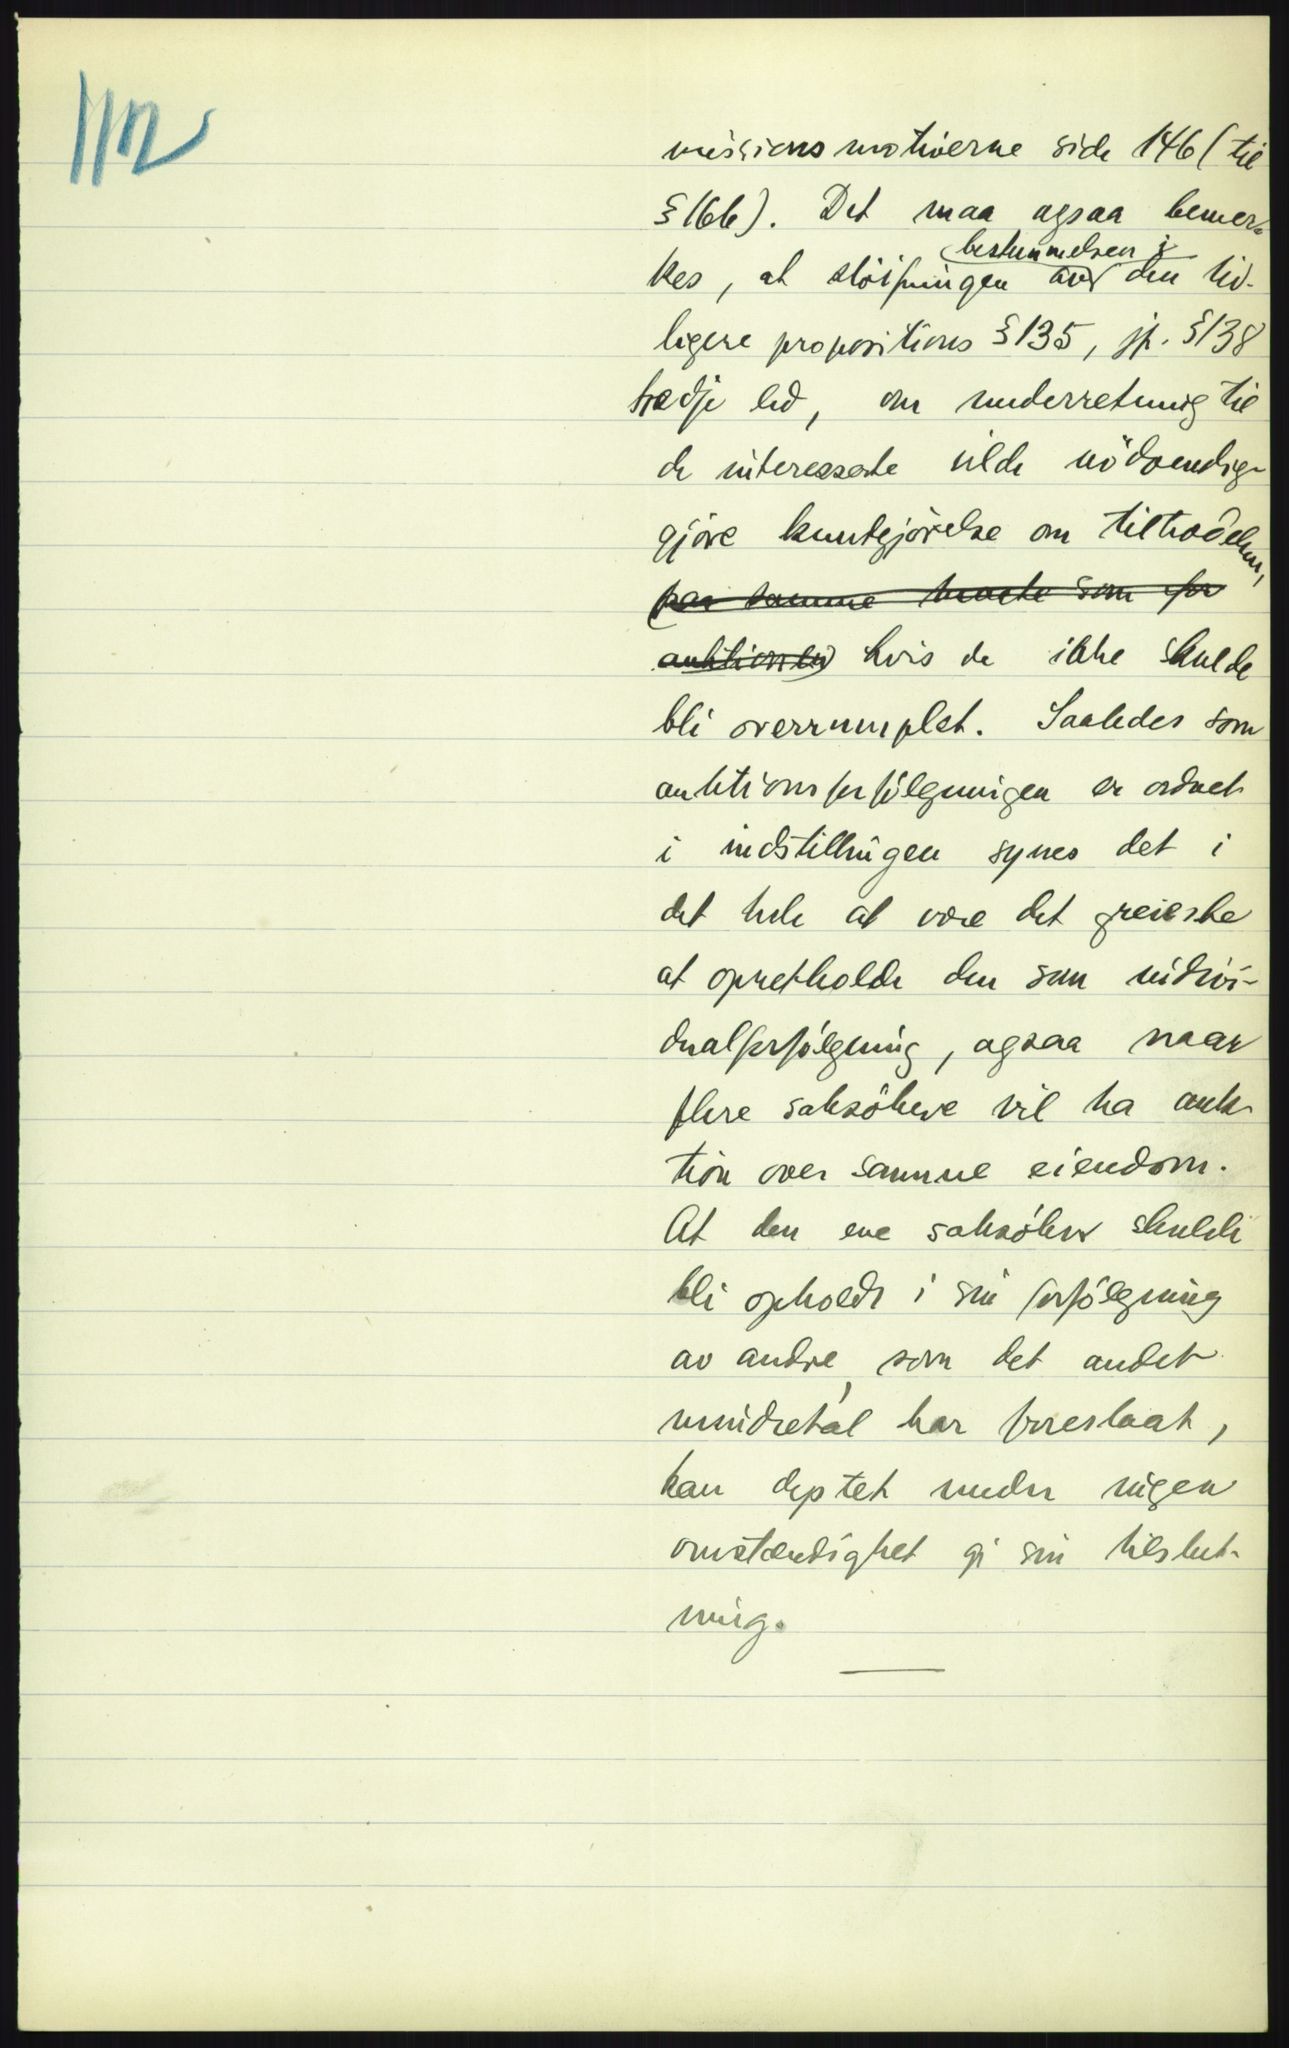 112
missionsmotiverne side 146 (til
§ 166). Det maa ogsaa bemer-
bestemmelsen i
kes, at sløifningen av den tid-
ligere propositions § 135, jf. § 138
tredje led, om underretning til
de interesserte vilde nödvendig-
gjöre kundgjörelse om tiltrædelsen,
paa samme maate som for
auktionen hvis de ikke skulde
bli overrumplet. Saaledes som
auktionsforfölgningen er ordnet
i indstillingen synes det i
det hele at være det greieste
at opretholde den som indivi-
dualforfölgning, ogsaa naar
flere saksökere vil ha auk-
tion over samme eiendom.
At den ene saksöker skulde
bli opholdt i sin forfölgning
av andre, som det andet
mindretal har foreslaat,
kan deptet under ingen
omstændighet gi sin tilslut-
ning.